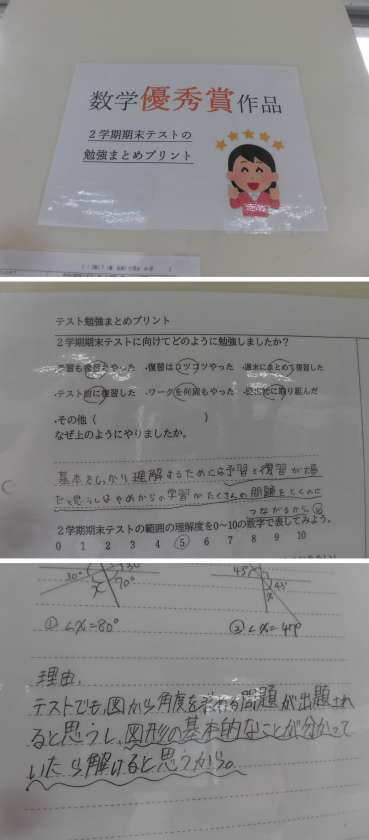 数学優秀賞作品
2学期期末テストの
勉強まとめプリント
テスト勉強まとめプリント
2学期期末テストに向けてどのように勉強しましたか?
予習も復習もやった ・復習はコツコツやった ・週末にまとめて復習した
・テスト前に復習した ・ワークを何周もやった ・に取り組んだ
・その他( )
なぜ上のようにやりましたか。
基本をしっかり理解するためには予習と復習が
だと思うしはやめからの学習がたくさんの問題をとくのに
つながるから
2学期期末テストの範囲の理解度を0~10の数字で表してみよう。
0 1 2 3 4 5 6 7 8 9 10
30° x 90°
45° 45° x
① ∠x=80°
② ∠x=
理由,
テストでも、図から角度を求める問題が出題され
ると思うし、図形の基本的なことが分かって
いたら解けると思うから。